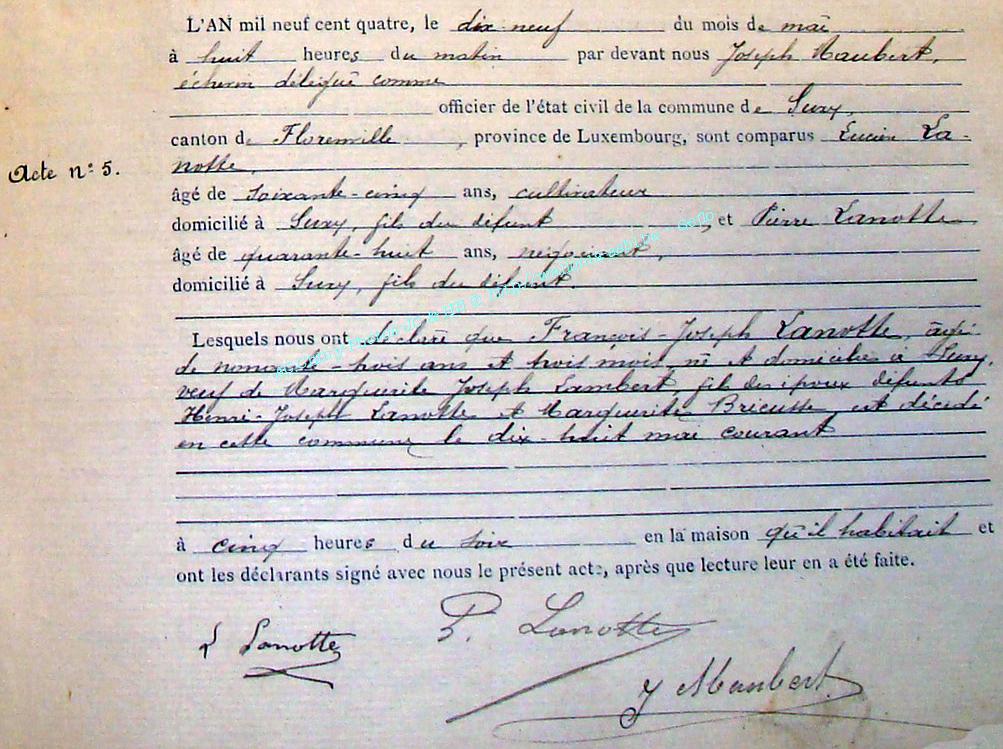 L'AN mil neuf cent quatre, le dix neuf du mois de mai
à huit heures du matin par devant nous Joseph Maubert,
échevin délégué comme
officier de l'état civil de la commune de Suxy,
canton de Florenville, province de Luxembourg, sont comparus Lucien La-
notte,
Acte n° 5.
âgé de soixante-cinq ans, cultivateur
domicilié à Suxy, fils du défunt, et Pierre Lanotte
âgé de quarante-huit ans, négociant,
domicilié à Suxy, fils du défunt.
Lesquels nous ont déclaré que François-Joseph Lanotte, âgé
de nonante-trois ans et trois mois, né et domicilié à Suxy,
veuf de Marguerite Joseph Lambert fils des époux défunts
Henri-Joseph Lanotte et Marguerite Bricusse, est décédé
en cette commune le dix-huit mai courant
à cinq heures du soir en la maison qu'il habitait et
ont les déclarants signé avec nous le présent acte, après que lecture leur en a été faite.
L Lanotte
P. Lanotte
J Maubert